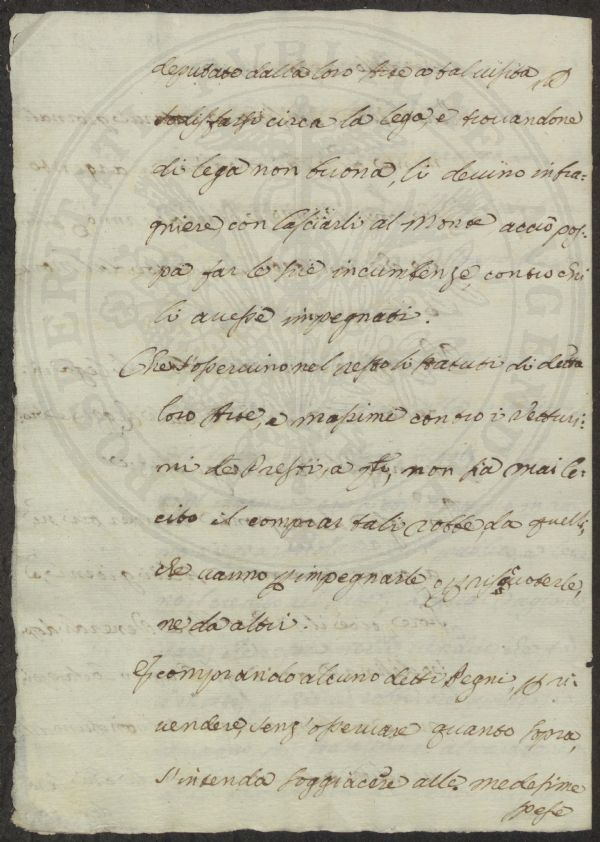 deputato dalla loro Arte a tal visita p
sodisfarsi circa la lega, e trovandone
di lega non buona, li devino infra-
gniere con lasciarli al Monte acciò pos-
sa far le sue incumbenze, contro chi
li avesse impegnati.
Che s'osservino nel resto li statuti di detta
loro Arte, e massime contro i Vetturi-
ni de Presti, a qli, non sia mai le-
cito il comprar tali robbe da quelli,
che vanno p impegnarle, o p risquoterle,
ne da altri.
E comprando alcuno detti Pegni, p ri-
vendere, senz'osservare quanto sopra,
s'intenda soggiacere alle medesime
pese